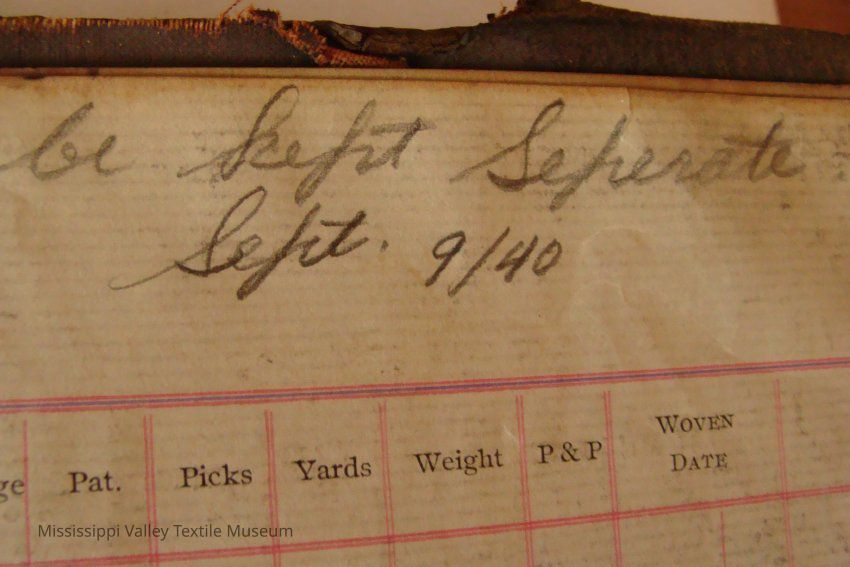 be kept Seperate
Sept. 9/40
ge Pat. Picks Yards Weight P & P WOVEN DATE
Mississippi Valley Textile Museum